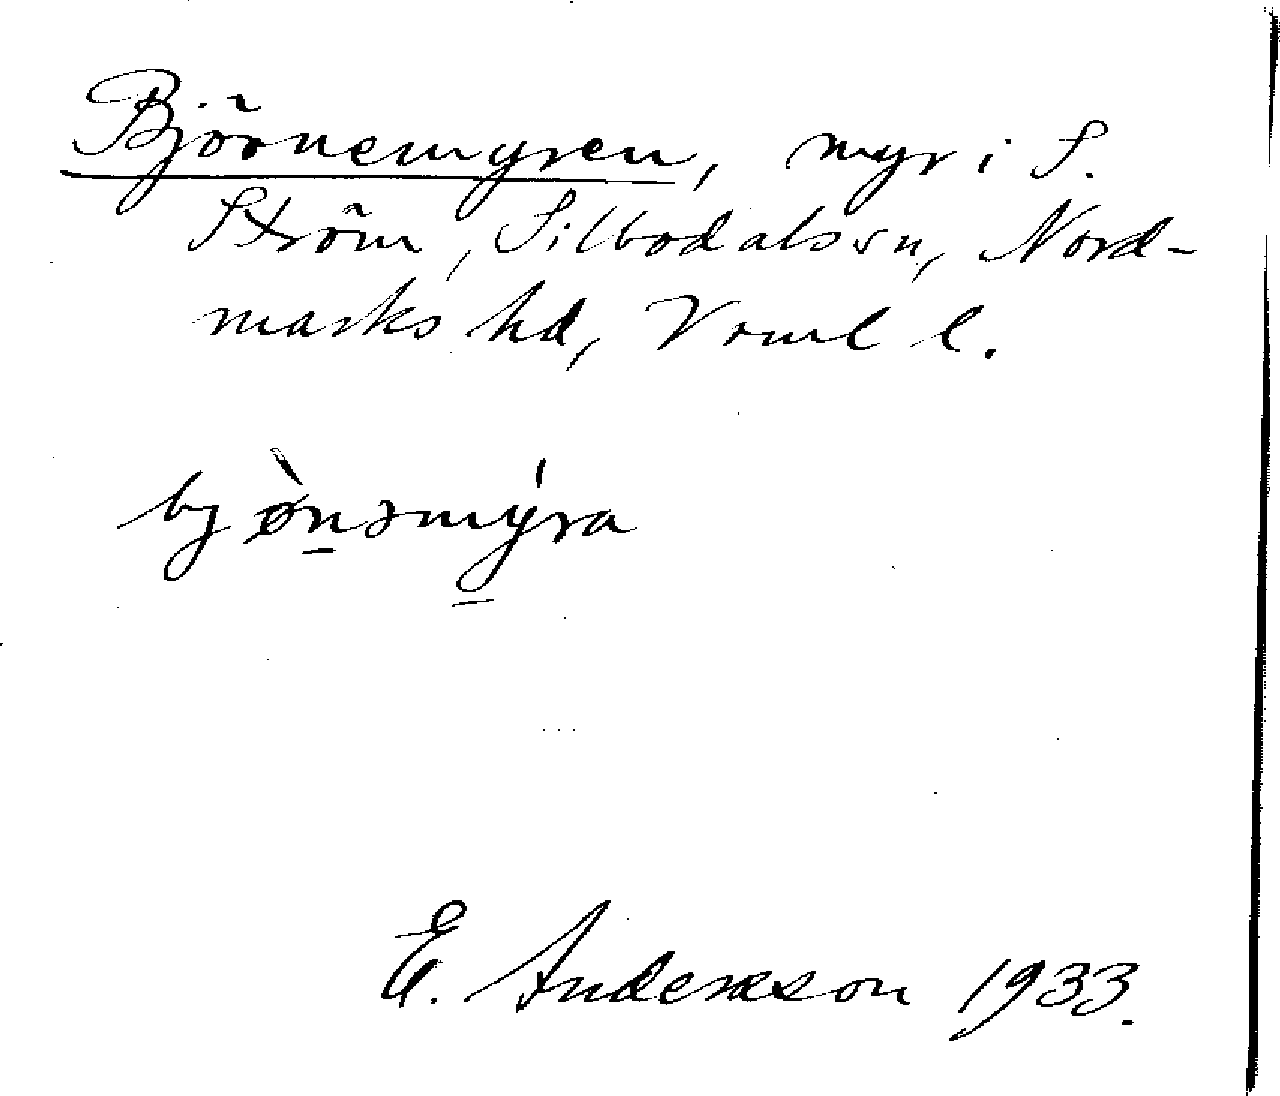 Björnemyren, myr i S.
Ström, Silbodals sn, Nord-
marks hd, Vrml l.
bjø̀nəmýra
E. Andersson 1933.